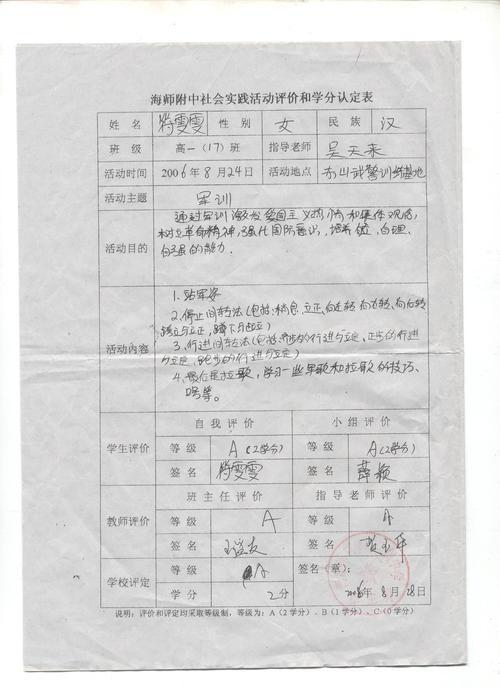 海师附中社会实践活动评价和学分认定表
姓名 符雯雯 性别 女 民族 汉
班级 高一（17）班 指导老师 吴天来
活动时间 2006年8月24日 活动地点 武警训练基地
活动主题 军训
活动目的 通过军训激发爱国主义热情和集体观念，
树立革命精神，强化国防意识，培养 自理、
自强的能力.
活动内容 1、站军姿
2、停止间转法(包括:稍息、立正、向左转 向右转、向后转
跨立与立正，蹲下与起立)
3、行进间转法(包括:齐步的行进与立定、正步的行进
与立定、跑步的行进与立定)
4、最后是拉歌，学习一些军歌和拉歌的技巧、
口号等。
学生评价 自我评价 小组评价
等级 A(2学分) 等级 A(2学分)
签名 符雯雯 签名 薛颖
教师评价 班主任评价 指导老师评价
等级 A 等级 A
签名 签名
学校评定 等级 A 签名（章）：
学分 2分 2006年8月28日
说明：评价和评定均采取等级制，等级为：A（2学分）、B（1学分）、C（0学分）